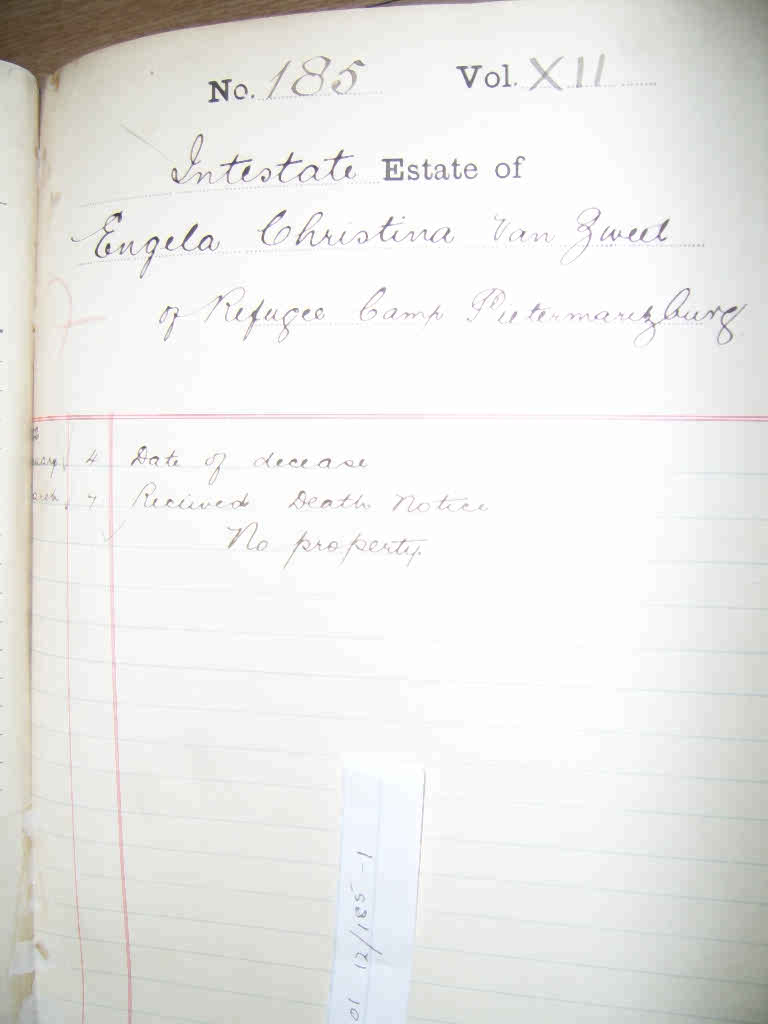 No. 185 Vol. XII
Intestate Estate of
Engela Christina Van Zweel
of Refugee Camp Pietermaritzburg
4 Date of decease
7 Recieved Death Notice
No property.
01 12/185 -1